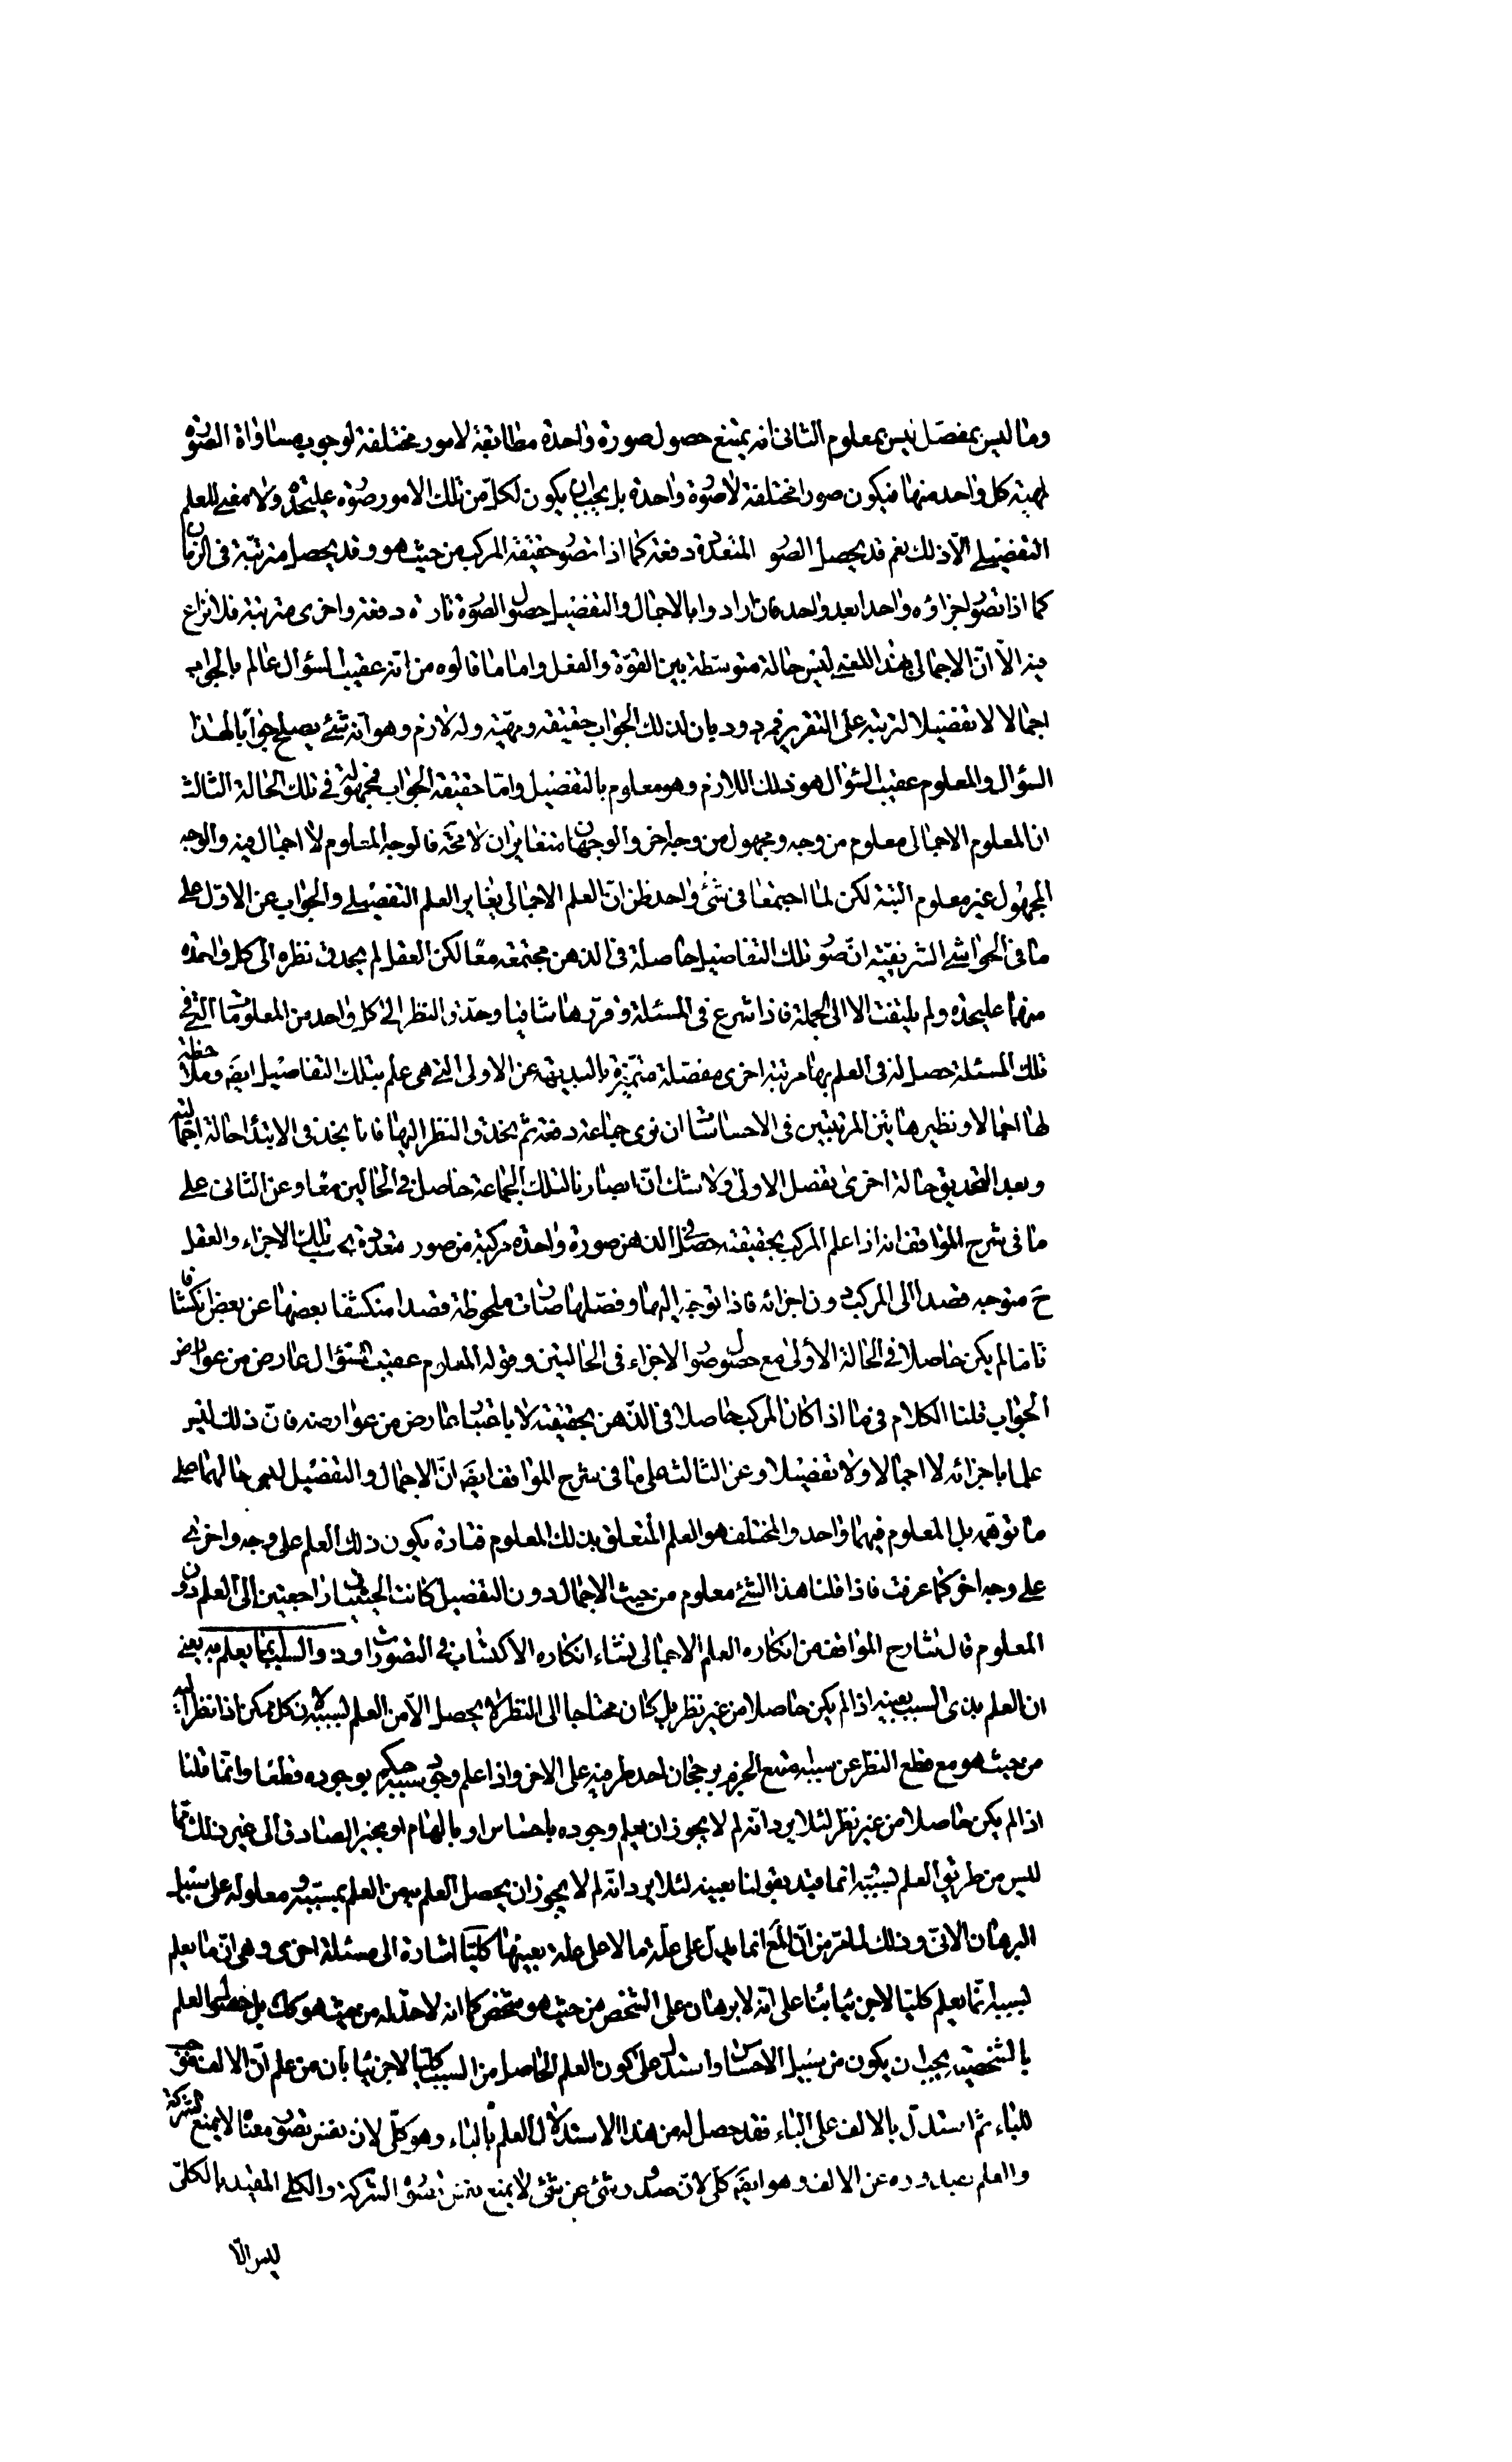 وما ليس بمفصل ليس بمعلوم الثانى انه يمتنع حصول صورة واحدة مطابقة لامور مختلفة لوجوب مساواة الصورة
لمهية كل واحد منها فيكون صورا مختلفة لا صورة واحدة بل يجب ان يكون لكل من تلك الامور صورة عليحدة ولا معنى للعلم
التفصيلى الا ذلك نعم قد يحصل الصور المتعددة دفعة كما اذا تصور حقيقة المركب من حيث هو وقد يحصل مترتبة فى الزمان
كما اذا تصور اجزاؤه واحدا بعد واحد فان ارادوا بالاجمال والتفصيل حصول الصورة تارة دفعة واخرى مترتبة فلا نزاع
فيه الا ان الاجمالى بهذا المعنى ليس حالة متوسطة بين القوة والفعل واما ما قالوه من انه عقيب السؤال عالم بالجواب
اجمالا لا تفصيلا لترتبه على التقرير فمردود بان لذلك الجواب حقيقة ومهية وله لازم وهو انه شئ يصلح جوابا لهذا
السؤال والمعلوم عقيب السؤال هو ذلك اللازم وهو معلوم بالتفصيل واما حقيقة الجواب فمجهولة فى تلك الحالة الثالث
ان المعلوم الاجمالى معلوم من وجه ومجهول من وجه اخر والوجهان متغايران لا محة فالوجه المعلوم لا اجمال فيه والوجه
المجهول غير معلوم البتة لكن لما اجتمعا فى شئ واحد ظن ان العلم الاجمالى يغاير العلم التفصيلى والجواب عن الاول على
ما فى الحواشى الشريفية ان صور تلك التفاصيل حاصلة فى الذهن مجتمعة معا لكن العقل لم يحدق نظره الى كل واحدة
منها عليحدة ولم يلتفت الا الى الجملة فاذا شرع فى المسئلة وقررها شافيا وحدق النظر الى كل واحد من المعلومات التى فى
تلك المسئلة حصل له فى العلم بها مرتبة اخرى مفصلة متميزة بالبديهة عن الاولى التى هى علم بتلك التفاصيل ايضَ وملاحظة
لها اجمالا ونظير هاتين المرتبتين فى الاحساسات ان نرى جماعة دفعة ثم نحدق النظر اليها فانا نجد فى الابتداء حالة اجمالية
وبعد التحديق حالة اخرى تفصل الاولى ولا شك ان ابصارنا لتلك الجماعة حاصل فى الحالين معا وعن الثانى على
ما فى شرح المواقف انه اذا علم المركب بحقيقته حصل فى الذهن صورة واحدة مركبة من صور متعددة بحسب تلك الاجزاء والعقل
حَ متوجه قصدا الى المركب دون اجزائه فاذا توجه اليها وفصلها صارت ملحوظة قصدا منكشفا بعضها عن بعض انكشافا
تاما لم يكن حاصلا فى الحالة الأولى مع حصول صور الاجزاء فى الحالتين وقوله المعلوم عقيب السؤال عارض من عوارض
الجواب قلنا الكلام فيما اذا كان المركب حاصلا فى الذهن بحقيقته لا باعتبار عارض من عوارضه فان ذلك ليس
علما باجزائه لا اجمالا ولا تفصيلا وعن الثالث على ما فى شرح المواقف ايضَ ان الاجمال والتفصيل ليس حالهما على
ما توهمه بل المعلوم فيهما واحد والمختلف هو العلم المتعلق بذلك المعلوم فتارة يكون ذلك العلم على وجه واخرى
على وجه اخر كما عرفت فاذا قلنا هذا الشئ معلوم من حيث الاجمال دون التفصيل كانت الحيثيتان راجعتين الى العلم دون
المعلوم قال شارح المواقف من انكاره العلم الاجمالى نشاء انكاره الاكتساب فى التصورات وذو السبب انما يعلم به يعنى
ان العلم بذى السبب بعينه اذا لم يكن حاصلا من غير نظر بل كان محتاجا الى النظر لا يحصل الا من العلم بسببه لان كل ممكن اذا نظر اليه
من حيث هو مع قطع النظر عن سببه امتنع الجزم برجحان احد طرفيه على الاخر واذا علم وجود سببه حكم بوجوده قطعا وانما قلنا
اذا لم يكن حاصلا من غير نظر لئلا يرد انه لم لا يجوز ان يعلم وجوده باحساس او بالهام او بخبر الصادق الى غير ذلك مما
ليس من طريق العلم بسببه وانما قيد بقولنا بعينه لئلا يرد انه لم لا يجوز ان يحصل العلم به من العلم بمسببه ومعلوله على سبيل
البرهان الانى وذلك لما مر من ان المع انما يدل على علة ما لا على علة بعينها كليا اشارة الى مسئلة اخرى وهى ان ما يعلم
بسببه انما يعلم كليا لا جزئيا بناء على انه لا برهان على الشخص من حيث هو شخص كما انه لا حد له من حيث هو كك بل حصول العلم
بالشخصية يجب ان يكون من سبيل الاحساس واستدل على كون العلم الحاصل من السبب كليا لا جزئيا بان من علم ان الالف موجب
للباء ثم استدل بالالف على الباء فقد حصل له من هذا الاستدلال العلم بالباء وهو كلى لان نفس تصور معناه لا يمنع الشركة
والعلم بصدوره عن الالف وهو ايضَ كلى لان صدور شئ عن شئ لا يمنع نفس تصوره الشركة والكلى المقيد بالكلى
ليس الا